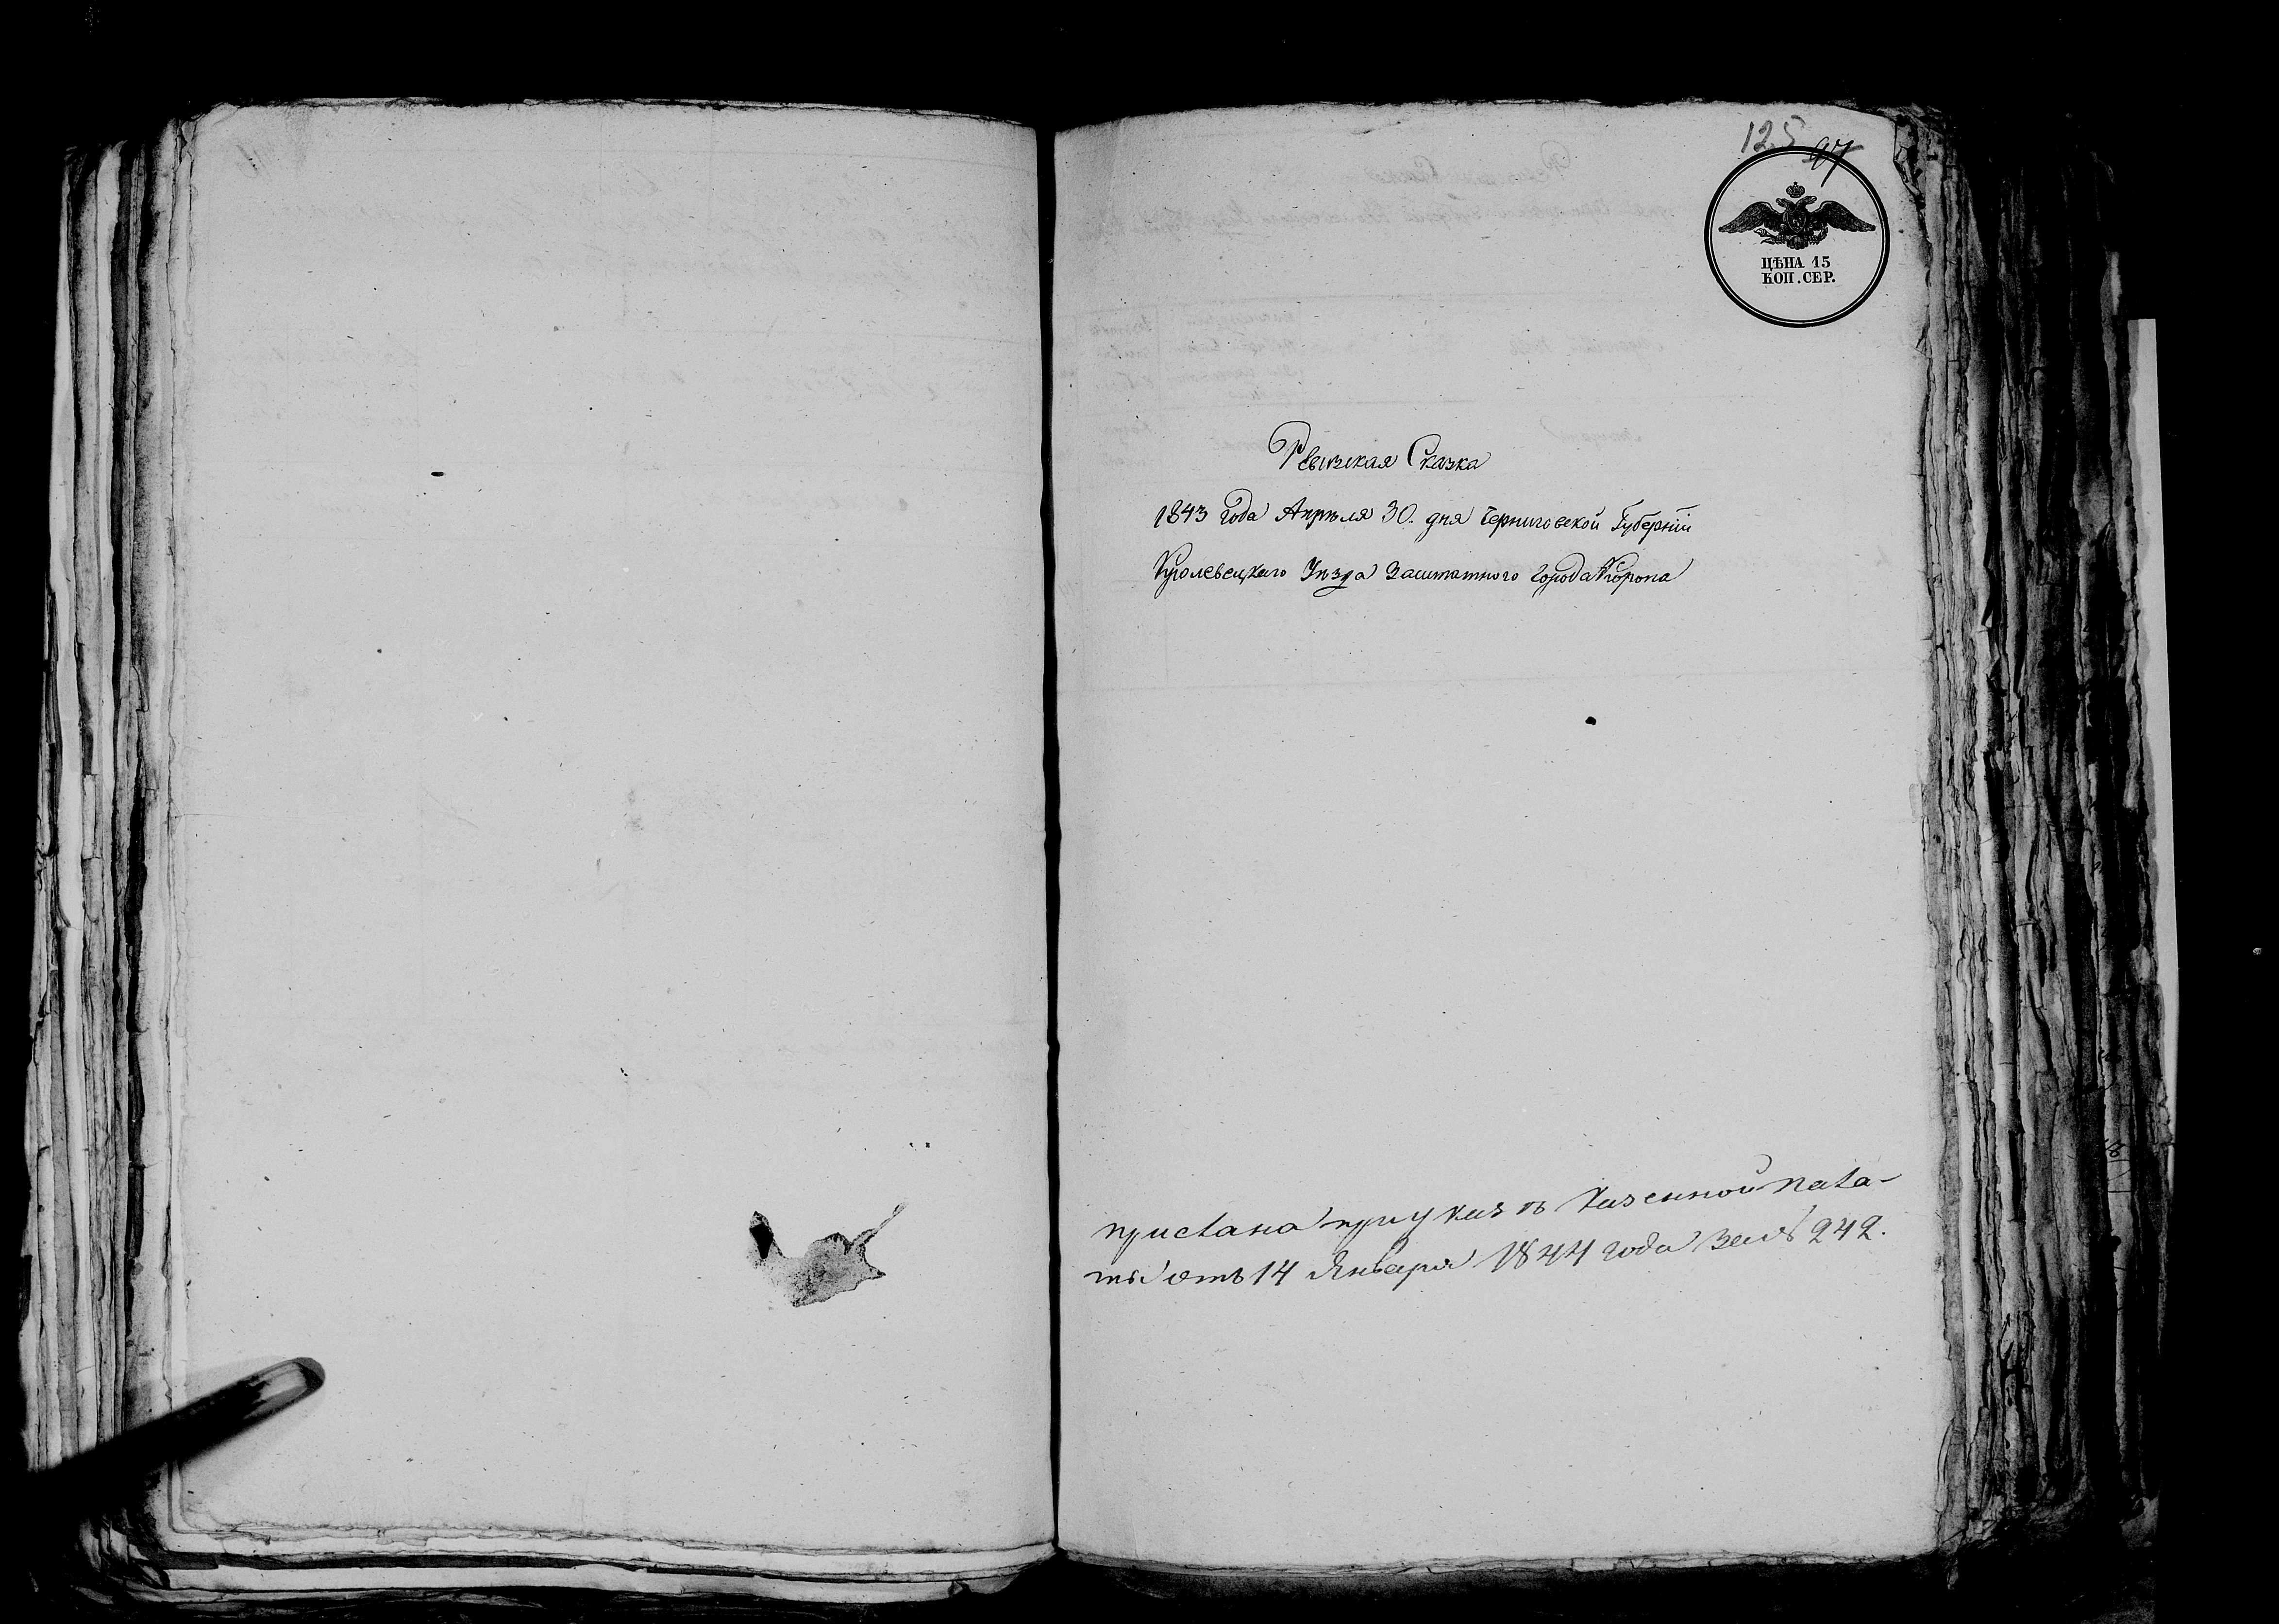 125 97
ЦѢНА 15
КОП. СЕР.
Ревизская Сказка
1843 года Апрѣля 30. дня Черниговской Губерніи
Кролевецкаго Уѣзда Заштатного города Коропа
прислана при указѣ Казенной пала-
ты отъ 14 Января 1844 года за № 242.